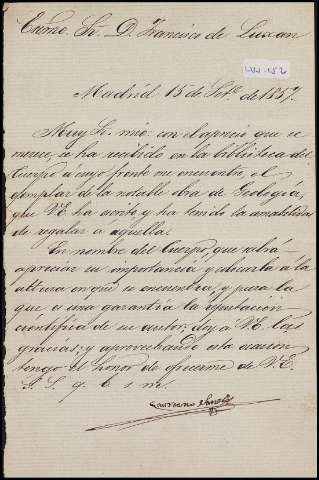 Excmo. Sr. D. Francisco de Luxan
LUX-152
Madrid 15 de Set.e de 1857.
Muy Sr. mio: con el aprecio que se
merece, se ha recibido en la biblioteca del
Cuerpo á cuyo frente me encuentro, el
ejemplar de la notable obra de Geología,
que V.E. ha escrito, y ha tenido la amabilidad
de regalar á aquella.
En nombre del Cuerpo, que sabrá
apreciar su importancia y colocarla á la
altura en que se encuentra, y para la
que es una garantía la reputacion
científica de su autor; doy á V.E. las
gracias; y aprovechando esta ocasion
tengo el honor de ofrecerme de V.E.
S. S. q. b. s. m.